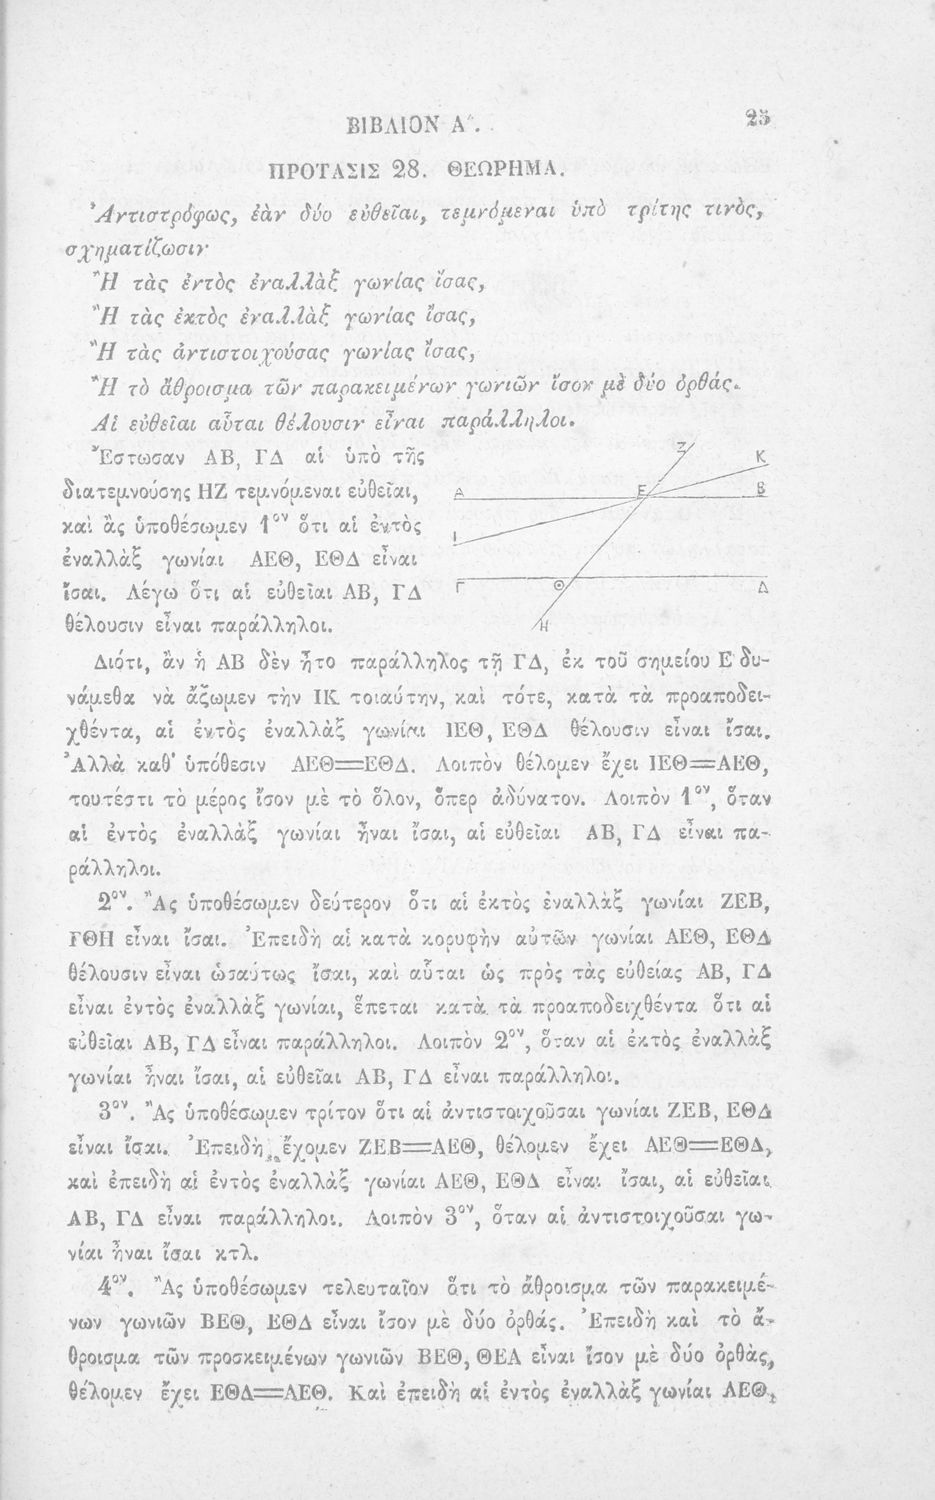 ΒΙΒΛΙΟΝ Α΄.
25
ΠΡΟΤΑΣΙΣ 28. ΘΕΩΡΗΜΑ.
Ἀντιστρόφως, ἐὰν δύο εὐθεῖαι, τεμνόμεναι ὑπὸ τρίτης τινὸς,
σχηματίζωσιν·
Ἢ τὰς ἐντὸς ἐναλλὰξ γωνίας ἴσας,
Ἢ τὰς ἐκτὸς ἐναλλὰξ γωνίας ἴσας,
Ἢ τὰς ἀντιστοιχούσας γωνίας ἴσας,
Ἢ τὸ ἄθροισμα τῶν παρακειμένων γωνιῶν ἴσον μὲ δύο ὀρθάς.
Αἱ εὐθεῖαι αὗται θέλουσιν εἶναι παράλληλοι.
Ἔστωσαν ΑΒ, ΓΔ αἱ ὑπὸ τῆς
διατεμνούσης ΗΖ τεμνόμεναι εὐθεῖαι,
καὶ ἂς ὑποθέσωμεν 1ον ὅτι αἱ ἐντὸς
ἐναλλὰξ γωνίαι ΑΕΘ, ΕΘΔ εἶναι
ἴσαι. Λέγω ὅτι αἱ εὐθεῖαι ΑΒ, ΓΔ
θέλουσιν εἶναι παράλληλοι.
Ζ
Κ
Α
Ε
Β
Ι
Γ
Θ
Δ
Η
Διότι, ἂν ἡ ΑΒ δὲν ἦτο παράλληλος τῇ ΓΔ, ἐκ τοῦ σημείου Ε δυ-
νάμεθα νὰ ἄξωμεν τὴν ΙΚ τοιαύτην, καὶ τότε, κατὰ τὰ προαποδει-
χθέντα, αἱ ἐντὸς ἐναλλὰξ γωνίαι ΙΕΘ, ΕΘΔ θέλουσιν εἶναι ἴσαι.
Ἀλλὰ καθ' ὑπόθεσιν ΑΕΘ=ΕΘΔ. Λοιπὸν θέλομεν ἔχει ΙΕΘ=ΑΕΘ,
τουτέστι τὸ μέρος ἴσον μὲ τὸ ὅλον, ὅπερ ἀδύνατον. Λοιπὸν 1ον, ὅταν
αἱ ἐντὸς ἐναλλὰξ γωνίαι ἦναι ἴσαι, αἱ εὐθεῖαι ΑΒ, ΓΔ εἶναι πα-
ράλληλοι.
2ον. Ἂς ὑποθέσωμεν δεύτερον ὅτι αἱ ἐκτὸς ἐναλλὰξ γωνίαι ΖΕΒ,
ΓΘΗ εἶναι ἴσαι. Ἐπειδὴ αἱ κατὰ κορυφὴν αὐτῶν γωνίαι ΑΕΘ, ΕΘΔ
θέλουσιν εἶναι ὡσαύτως ἴσαι, καὶ αὗται ὡς πρὸς τὰς εὐθείας ΑΒ, ΓΔ
εἶναι ἐντὸς ἐναλλὰξ γωνίαι, ἕπεται κατὰ τὰ προαποδειχθέντα ὅτι αἱ
εὐθεῖαι ΑΒ, ΓΔ εἶναι παράλληλοι. Λοιπὸν 2ον, ὅταν αἱ ἐκτὸς ἐναλλὰξ
γωνίαι ἦναι ἴσαι, αἱ εὐθεῖαι ΑΒ, ΓΔ εἶναι παράλληλοι.
3ον. Ἂς ὑποθέσωμεν τρίτον ὅτι αἱ ἀντιστοιχοῦσαι γωνίαι ΖΕΒ, ΕΘΔ
εἶναι ἴσαι. Ἐπειδὴ ἔχομεν ΖΕΒ=ΑΕΘ, θέλομεν ἔχει ΑΕΘ=ΕΘΔ,
καὶ ἐπειδὴ αἱ ἐντὸς ἐναλλὰξ γωνίαι ΑΕΘ, ΕΘΔ εἶναι ἴσαι, αἱ εὐθεῖαι
ΑΒ, ΓΔ εἶναι παράλληλοι. Λοιπὸν 3ον, ὅταν αἱ ἀντιστοιχοῦσαι γω-
νίαι ἦναι ἴσαι κτλ.
4ον. Ἂς ὑποθέσωμεν τελευταῖον ὅτι τὸ ἄθροισμα τῶν παρακειμέ-
νων γωνιῶν ΒΕΘ, ΕΘΔ εἶναι ἴσον μὲ δύο ὀρθάς. Ἐπειδὴ καὶ τὸ ἄ-
θροισμα τῶν προσκειμένων γωνιῶν ΒΕΘ, ΘΕΑ εἶναι ἴσον μὲ δύο ὀρθὰς,
θέλομεν ἔχει ΕΘΔ=ΑΕΘ. Καὶ ἐπειδὴ αἱ ἐντὸς ἐναλλὰξ γωνίαι ΑΕΘ,